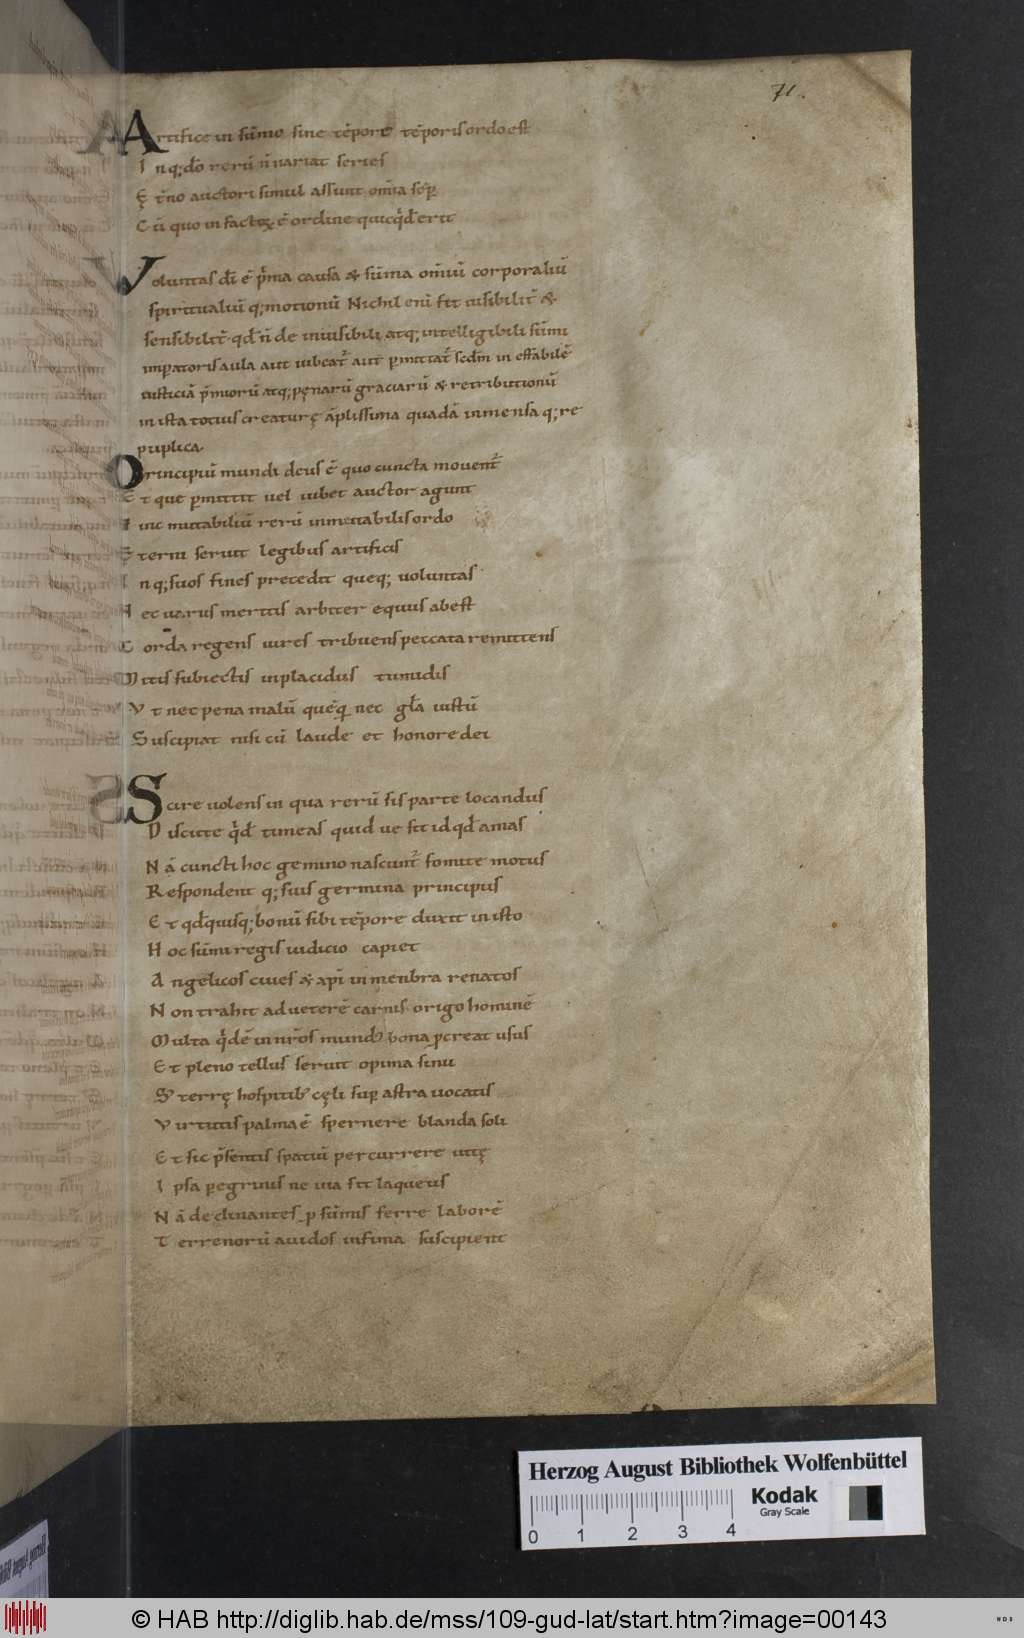 71.
Artifice in sūmo sine tēpore tēporis ordo est
Inq; dō rerū n̄ uariat series
Ęt̄no auctori simul assunt om̄ia sēp
Cū quo in factis ē ordine quicq̄d erit
Voluntas dī ē p̄ma causa & sūma om̄iū corporaliū
spiritualiū q; motionū Nichil enī fit uisibilit̄ &
sensibilit̄ qd̄ n̄ de inuisibili atq; intelligibili sūmi
imperatoris aula aut iubeat̄ aut p̄mittat̄ scdm̄ ineffabilē
iusticiā p̄miorū atq; pęnarū graciarū & retributionū
in ista totius creaturę āplissima quadā inmensa q; re
puplica.
Principiū mundi deus ē quo cuncta mouent̄
Et que p̄mittit uel iubet auctor agunt
Hinc mutabiliū rerū inmutabilis ordo
Eterni seruit legibus artificis
Inq; suos fines precedit queq; uoluntas
Nec uarus meritis arbiter equus abest
Corda regens uires tribuens peccata remittens
Mitis subiectis inplacidus tumidis
Vt nec pena malū quēq̄ nec gl̄a iustū
Suscipiat nisi cū laude et honore dei
Scire uolens in qua rerū sis parte locandus
Discute q̄d timeas quid ue sit id qd̄ amas
Nā cuncti hoc gemino nascunt̄ fomite motus
Respondent q; suis germina principiis
Et qd̄ quisq; bonū sibi tēpore duxit in isto
Hoc sūmi regis iudicio capiet
Angelicos ciues & xp̄i in menbra renatos
Non trahit ad ueterē carnis origo hominē
Multa q̄dē in nr̄os mundus bona p̄creat usus
Et pleno tellus seruit opima sinu
S; terrę hospitib; cęli sup astra uocatis
Virtutis palma ē spernere blanda soli
Et sic p̄sentis spatiū percurrere uitę
Ipsa peregrinis ne uia sit laqueus
Nā declinantes p sūmis ferre laborē
Terrenorū auidos infima suscipient
Herzog August Bibliothek Wolfenbüttel
Kodak
Gray Scale
0 1 2 3 4
© HAB http://diglib.hab.de/mss/109-gud-lat/start.htm?image=00143